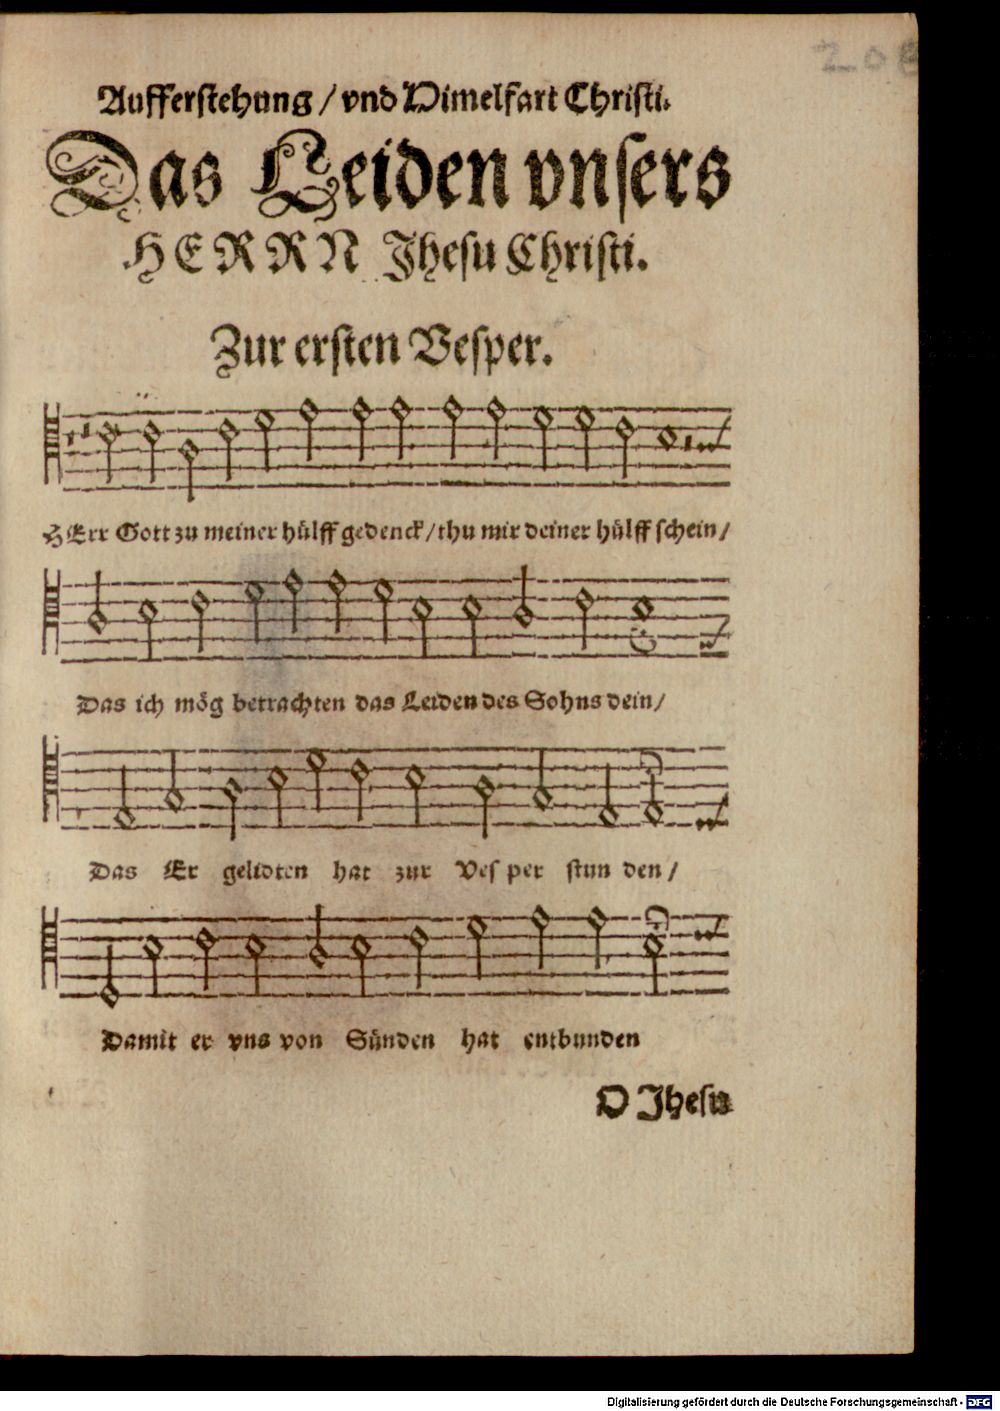 208
Aufferstehung / vnd Himelfart Christi.
Das Leiden vnsers
HERRN Jhesu Christi.
Zur ersten Vesper.
HErr Gott zu meiner hülff gedenck / thu mir deiner hülff schein /
Das ich mög betrachten das Leiden des Sohns dein /
Das Er gelidten hat zur Ves per stun den /
Damit er vns von Sünden hat entbunden
O Jhesu
Digitalisierung gefördert durch die Deutsche Forschungsgemeinschaft - DFG